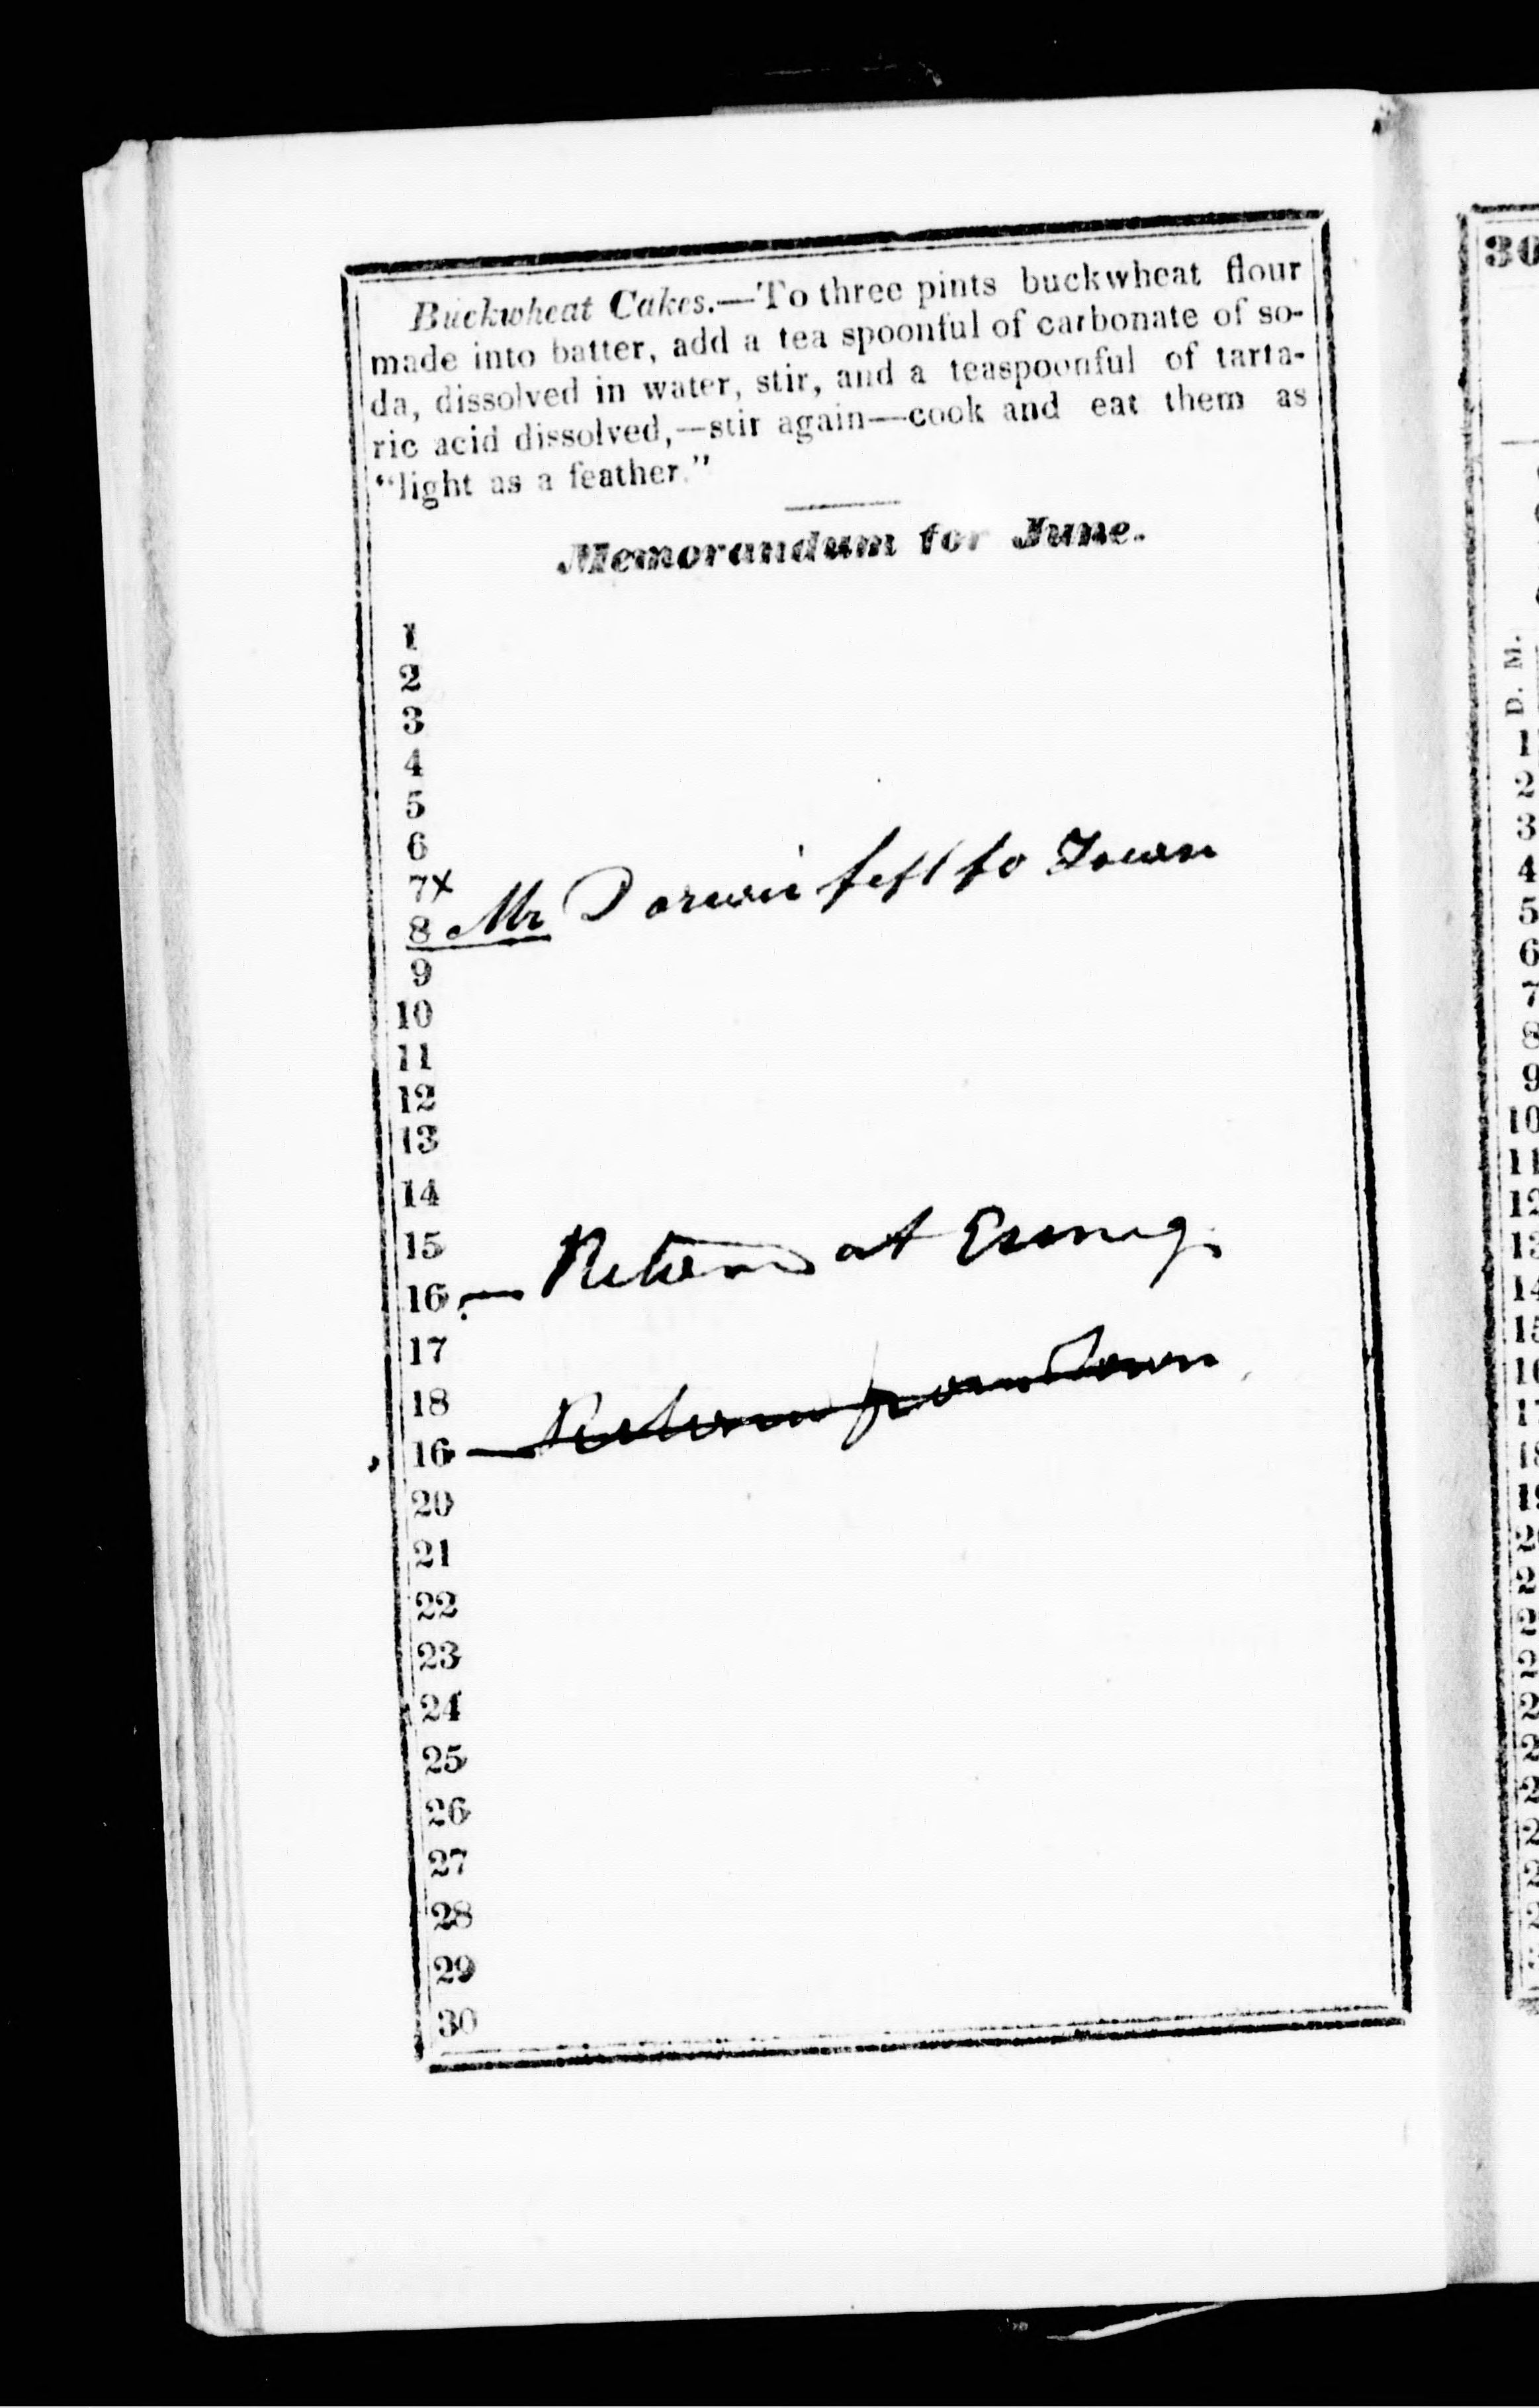 Buckwheat Cakes.—To three pints buckwheat flour
made into batter, add a tea spoonful of carbonate of so-
da, dissolved in water, stir, and a teaspoonful of tarta-
ric acid dissolved,—stir again—cook and eat them as
"light as a feather."
Memorandum for June.
1
2
3
4
5
6
7x
8 Mr Darwin left to Town
9
10
11
12
13
14
15
16 — Return at Evening
17
18
16 — Return from Town
20
21
22
23
24
25
26
27
28
29
30
30
D. M.
1
2
3
4
5
6
7
8
9
10
11
12
13
14
15
16
17
18
19